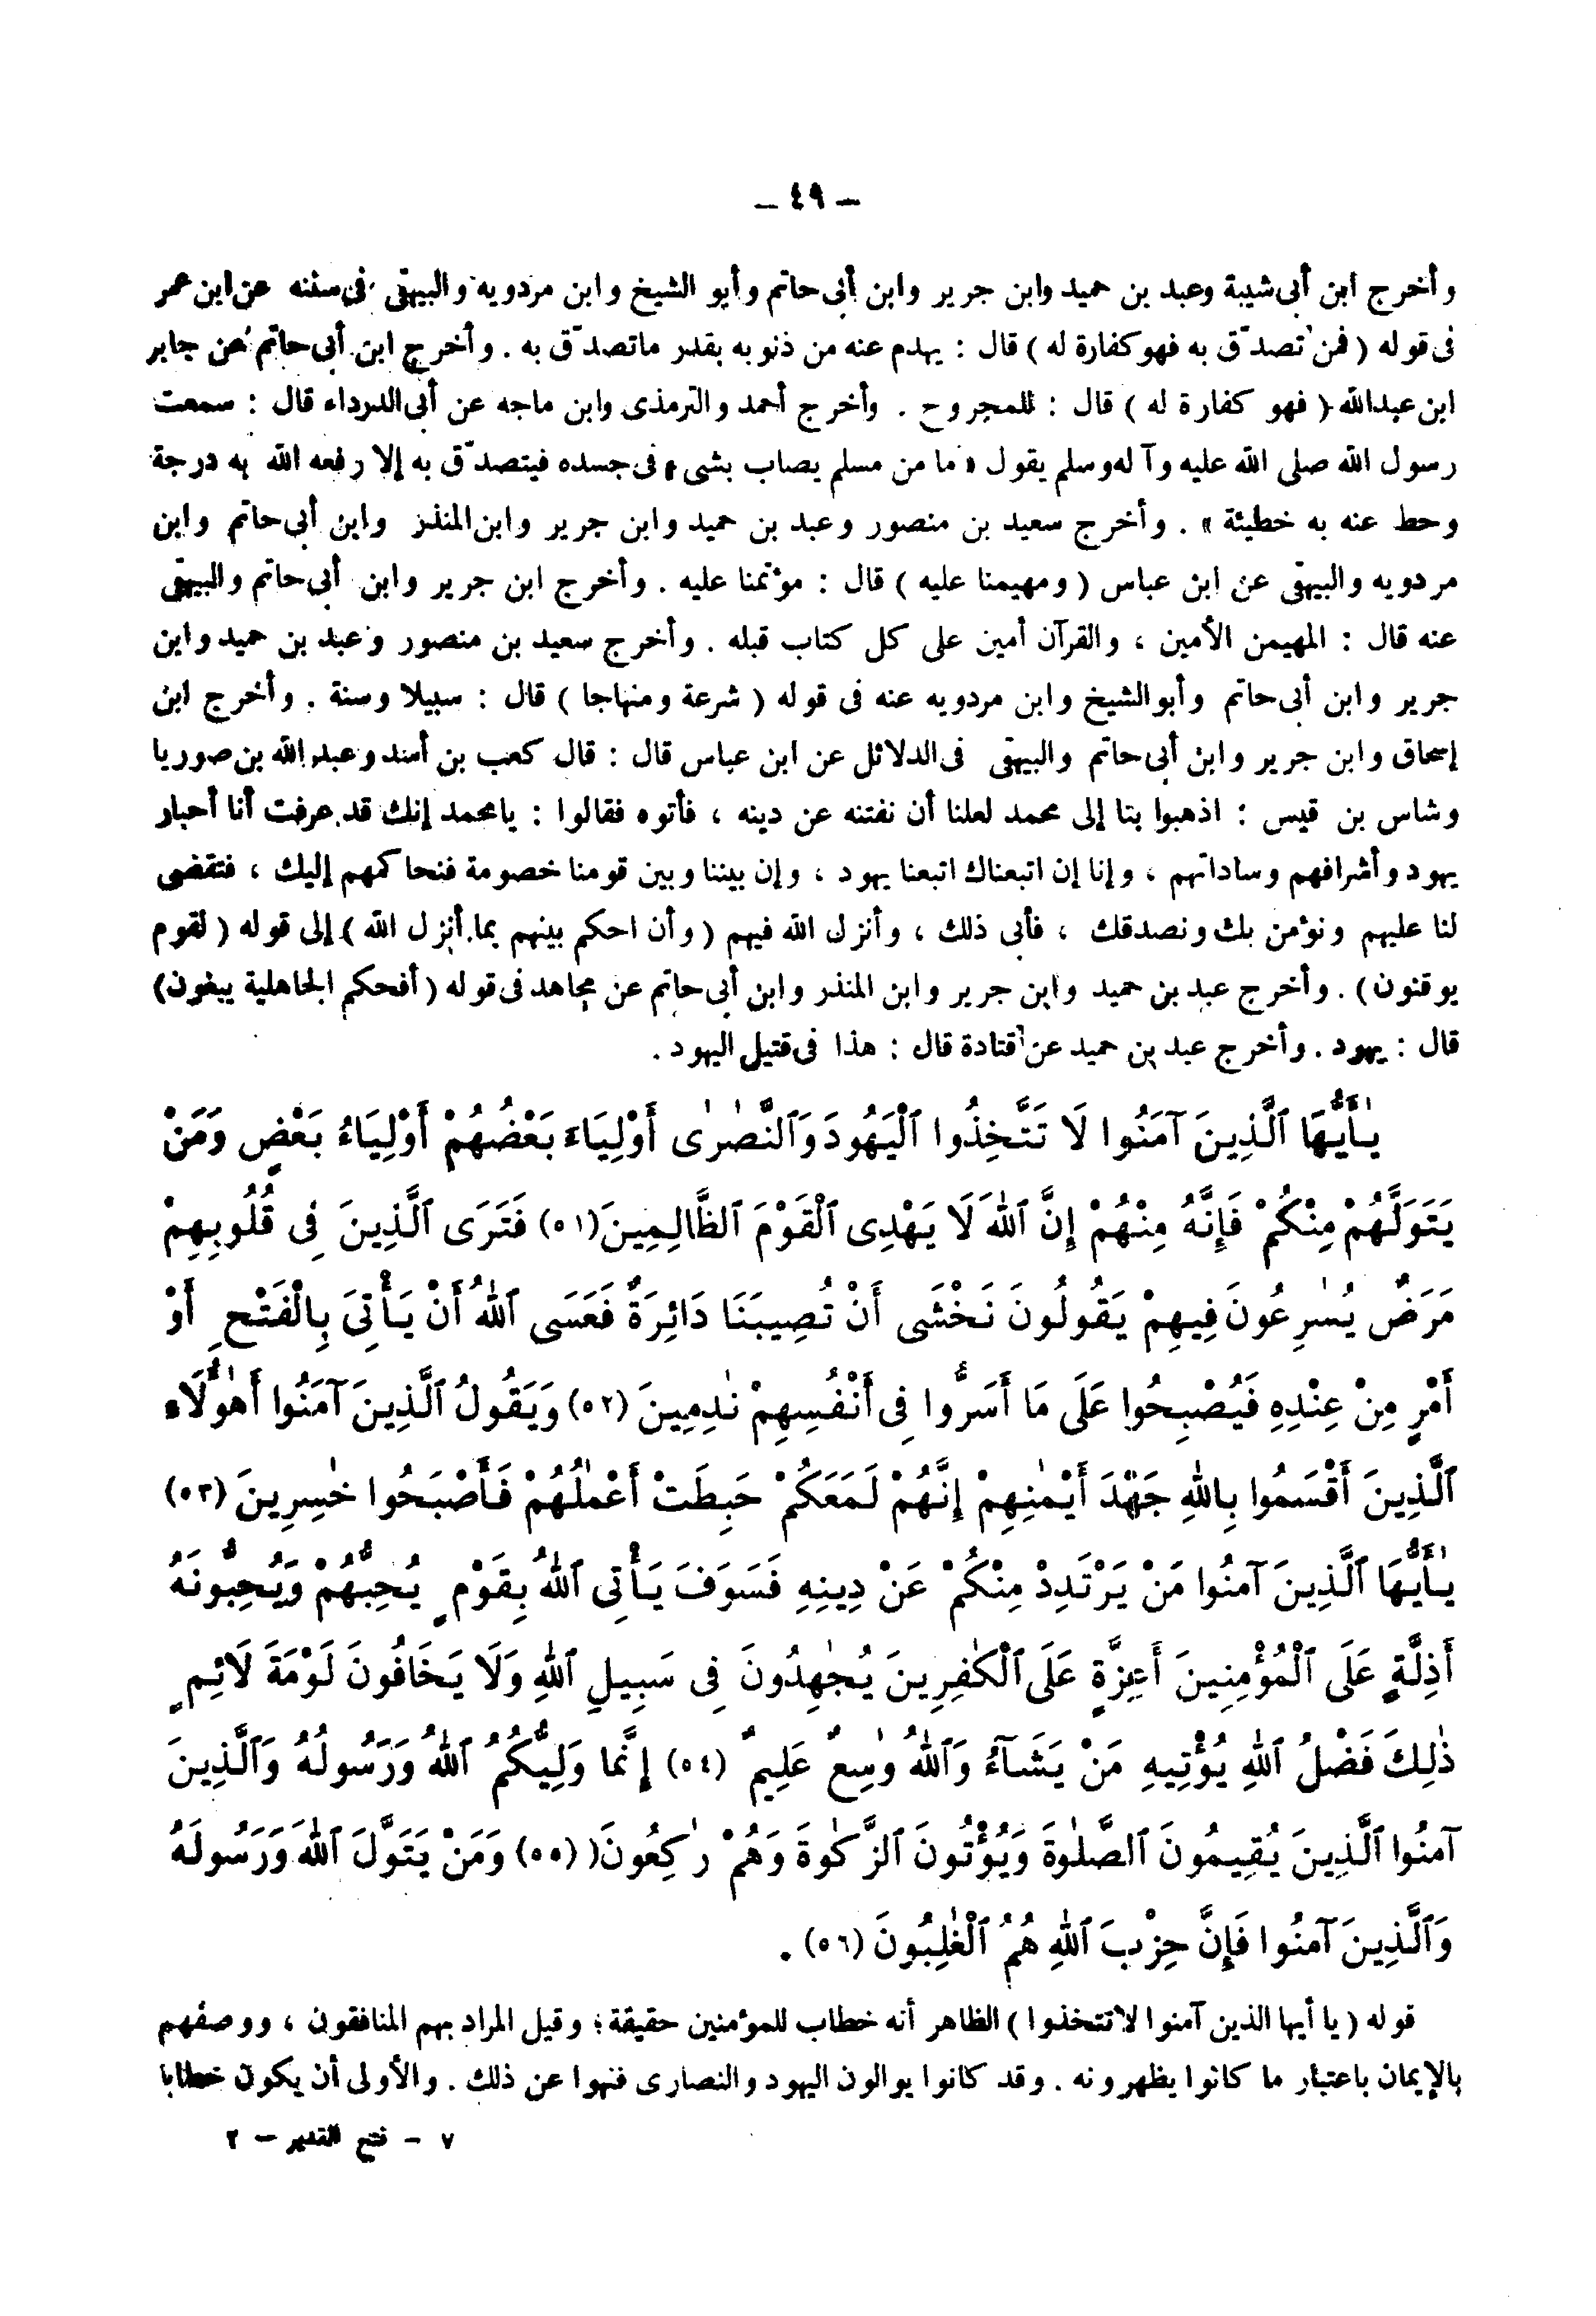 – ٤٩ –
وأخرج ابن أبى شيبة وعبد بن حميد وابن جرير وابن أبى حاتم وأبو الشيخ وابن مردويه والبيهقى فى سننه عن ابن عمر
فى قوله ( فمن تصدّق به فهو كفارة له ) قال : يهدم عنه من ذنوبه بقدر ماتصدّق به . وأخرج ابن أبى حاتم عن جابر
ابن عبدالله ( فهو كفارة له ) قال : للمجروح . وأخرج أحمد والترمذى وابن ماجه عن أبى الدرداء قال : سمعت
رسول الله صلى الله عليه وآله وسلم يقول « ما من مسلم يصاب بشىء فى جسده فيتصدّق به إلا رفعه الله به درجة
وحط عنه به خطيئة » . وأخرج سعيد بن منصور وعبد بن حميد وابن جرير وابن المنذر وابن أبى حاتم وابن
مردويه والبيهقى عن ابن عباس ( ومهيمنا عليه ) قال : مؤتمنا عليه . وأخرج ابن جرير وابن أبى حاتم والبيهقى
عنه قال : المهيمن الأمين ، والقرآن أمين على كل كتاب قبله . وأخرج سعيد بن منصور وعبد بن حميد وابن
جرير وابن أبى حاتم وأبو الشيخ وابن مردويه عنه فى قوله ( شرعة ومنهاجا ) قال : سبيلا وسنة . وأخرج ابن
إسحاق وابن جرير وابن أبى حاتم والبيهقى فى الدلائل عن ابن عباس قال : قال كعب بن أسد وعبد الله بن صوريا
وشاس بن قيس : اذهبوا بنا إلى محمد لعلنا أن نفتنه عن دينه ، فأتوه فقالوا : يا محمد إنك قد عرفت أنا أحبار
يهود وأشرافهم وساداتهم ، وإنا إن اتبعناك اتبعنا يهود ، وإن بيننا وبين قومنا خصومة فنحاكمهم إليك ، فتقضى
لنا عليهم ونؤمن بك ونصدقك ، فأبى ذلك ، وأنزل الله فيهم ( وأن احكم بينهم بما أنزل الله ) إلى قوله ( لقوم
يوقنون ) . وأخرج عبد بن حميد وابن جرير وابن المنذر وابن أبى حاتم عن مجاهد فى قوله ( أفحكم الجاهلية يبغون)
قال : يهود . وأخرج عبد بن حميد عن قتادة قال : هذا فى قتيل اليهود .
يٰأَيُّهَا ٱلَّذِينَ آمَنُوا لَا تَتَّخِذُوا ٱلْيَهُودَ وَٱلنَّصٰرٰى أَوْلِيَاءَ بَعْضُهُمْ أَوْلِيَاءُ بَعْضٍ وَمَنْ
يَتَوَلَّهُمْ مِنْكُمْ فَإِنَّهُ مِنْهُمْ إِنَّ ٱللهَ لَا يَهْدِى ٱلْقَوْمَ ٱلظَّالِمِينَ (٥١) فَتَرَى ٱلَّذِينَ فِى قُلُوبِهِمْ
مَرَضٌ يُسٰرِعُونَ فِيهِمْ يَقُولُونَ نَخْشَى أَنْ تُصِيبَنَا دَائِرَةٌ فَعَسَى ٱللهُ أَنْ يَأْتِىَ بِالْفَتْحِ أَوْ
أَمْرٍ مِنْ عِنْدِهِ فَيُصْبِحُوا عَلَى مَا أَسَرُّوا فِى أَنْفُسِهِمْ نٰدِمِينَ (٥٢) وَيَقُولُ ٱلَّذِينَ آمَنُوا أَهٰؤُلَاءِ
ٱلَّذِينَ أَقْسَمُوا بِاللهِ جَهْدَ أَيْمٰنِهِمْ إِنَّهُمْ لَمَعَكُمْ حَبِطَتْ أَعْمٰلُهُمْ فَأَصْبَحُوا خٰسِرِينَ (٥٣)
يٰأَيُّهَا ٱلَّذِينَ آمَنُوا مَنْ يَرْتَدِدْ مِنْكُمْ عَنْ دِينِهِ فَسَوَفَ يَأْتِى ٱللهُ بِقَوْمٍ يُحِبُّهُمْ وَيُحِبُّونَهُ
أَذِلَّةٍ عَلَى ٱلْمُؤْمِنِينَ أَعِزَّةٍ عَلَى ٱلْكٰفِرِينَ يُجٰهِدُونَ فِى سَبِيلِ ٱللهِ وَلَا يَخَافُونَ لَوْمَةَ لَائِمٍ
ذٰلِكَ فَضْلُ ٱللهِ يُؤْتِيهِ مَنْ يَشَآءُ وَٱللهُ وٰسِعٌ عَلِيمٌ (٥٤) إِنَّمَا وَلِيُّكُمُ ٱللهُ وَرَسُولُهُ وَٱلَّذِينَ
آمَنُوا ٱلَّذِينَ يُقِيمُونَ ٱلصَّلٰوةَ وَيُؤْتُونَ ٱلزَّكٰوةَ وَهُمْ رٰكِعُونَ (٥٥) وَمَنْ يَتَوَلَّ ٱللهَ وَرَسُولَهُ
وَٱلَّذِينَ آمَنُوا فَإِنَّ حِزْبَ ٱللهِ هُمُ ٱلْغٰلِبُونَ (٥٦) .
قوله ( يا أيها الذين آمنوا لا تتخذوا ) الظاهر أنه خطاب للمؤمنين حقيقة ؛ وقيل المراد بهم المنافقون ، ووصفهم
بالإيمان باعتبار ما كانوا يظهرونه . وقد كانوا يوالون اليهود والنصارى فنهوا عن ذلك . والأولى أن يكون خطابا
٧ – فتح القدير – ٢